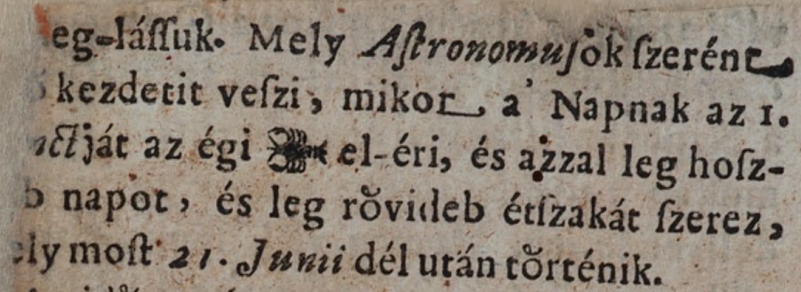 eg-láſſuk. Mely Aſtronomuſok ſzerént
kezdetit veſzi, mikor a' Napnak az 1.
ját az égi ♋ el-éri, és azzal leg hoſz-
napot, és leg rövideb étſzakát ſzerez,
ly moſt 21. Junii dél után történik.